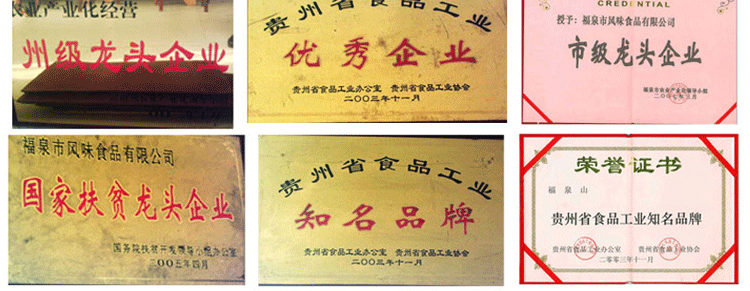 农业产业化经营
州级龙头企业
贵州省食品工业
优秀企业
贵州省食品工业办公室 贵州省食品工业协会
二〇〇三年十一月
CREDENTIAL
授予：福泉市风味食品有限公司
市级龙头企业
福泉市农业产业化领导小组
二〇〇七年三月
福泉市风味食品有限公司
国家扶贫龙头企业
国务院扶贫开发领导小组办公室
二〇〇五年四月
贵州省食品工业
知名品牌
贵州省食品工业办公室 贵州省食品工业协会
二〇〇三年十一月
荣誉证书
福泉山
贵州省食品工业知名品牌
贵州省食品工业办公室 贵州省食品工业协会
二零零三年十一月